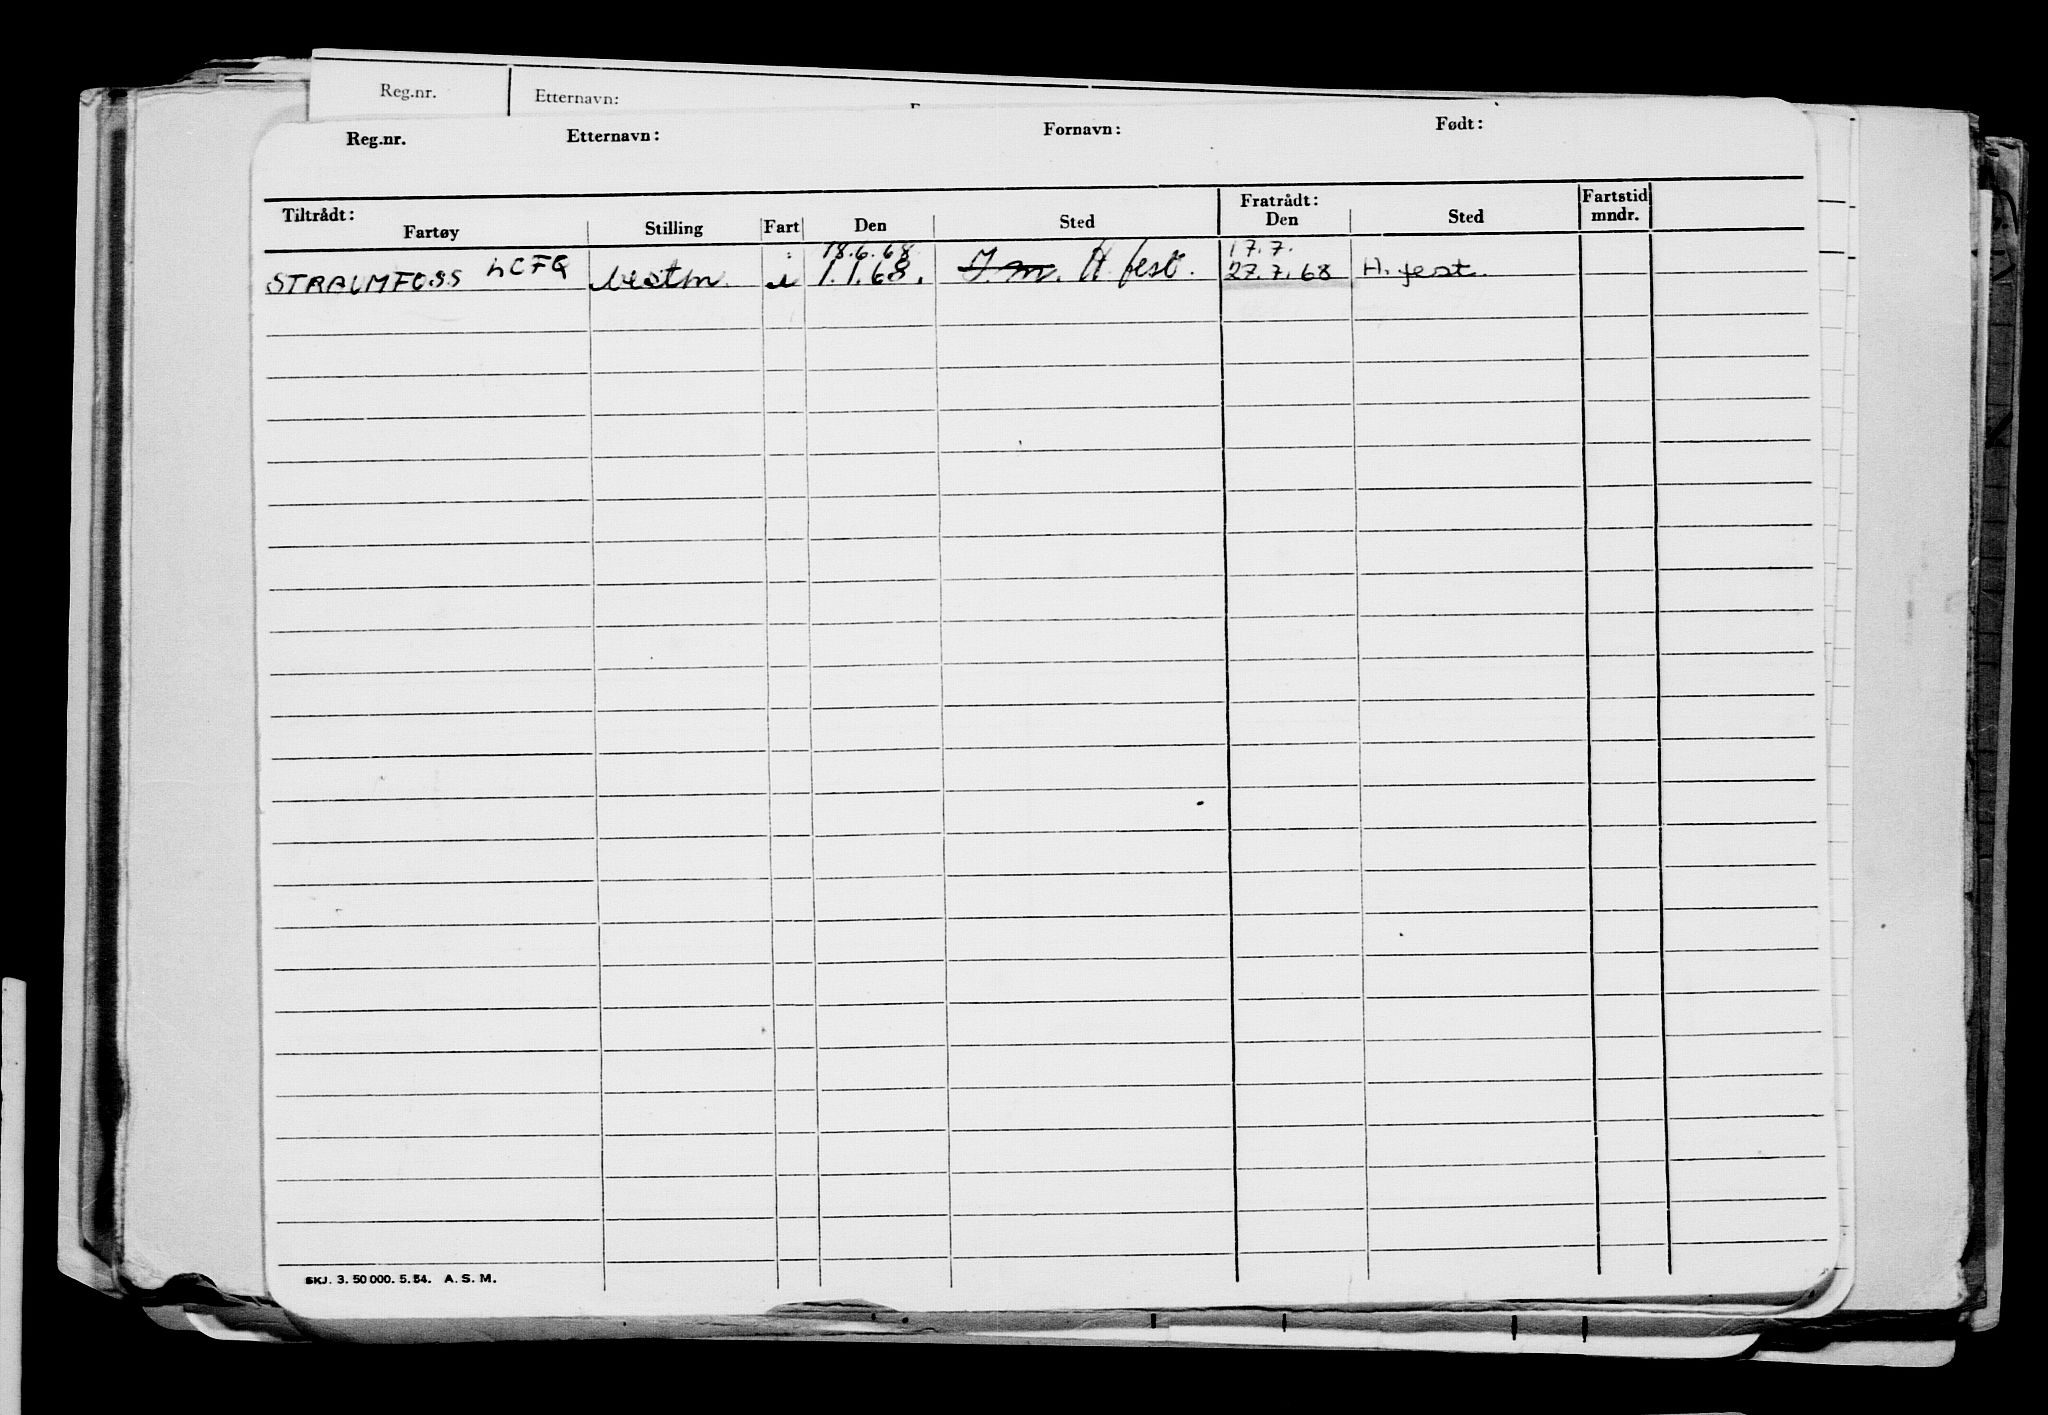 Reg.nr. Etternavn:
Reg.nr. Etternavn: Fornavn: Født:
Tiltrådt: Fratrådt: Fartstid
Fartøy Stilling Fart Den Sted Den Sted mndr.
18.6.68 17.7.
STRAUMFOSS LCFQ bestm. i 1.1.68. J.m. H.fest. 27.7.68 H.fest.
SKJ. 3. 50 000. 5.54. A. S. M.